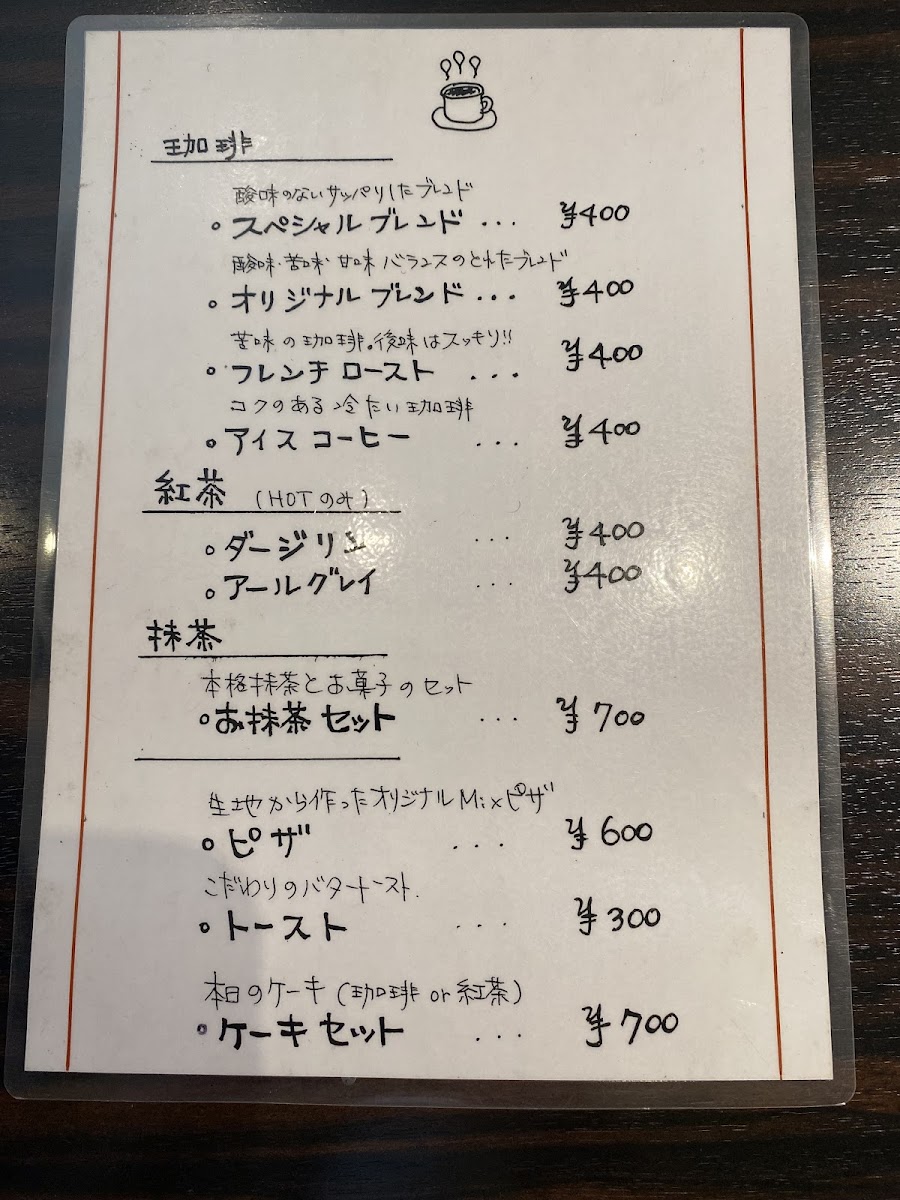 珈琲
酸味のないサッパリしたブレンド
スペシャルブレンド ... ¥400
酸味・苦味・甘味 バランスのとれたブレンド
オリジナルブレンド ... ¥400
苦味の珈琲。後味はスッキリ!!
フレンチロースト ... ¥400
コクのある冷たい珈琲
アイスコーヒー ... ¥400
紅茶 (HOTのみ)
ダージリン ... ¥400
アールグレイ ... ¥400
抹茶
本格抹茶とお菓子のセット
お抹茶セット ... ¥700
生地から作ったオリジナルMixピザ
ピザ ... ¥600
こだわりのバタートースト.
トースト ... ¥300
本日のケーキ (珈琲 or 紅茶)
ケーキセット ... ¥700